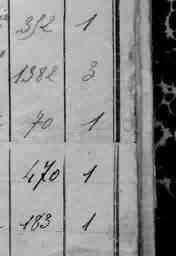 352 1
1382 3
70 1
470 1
183 1